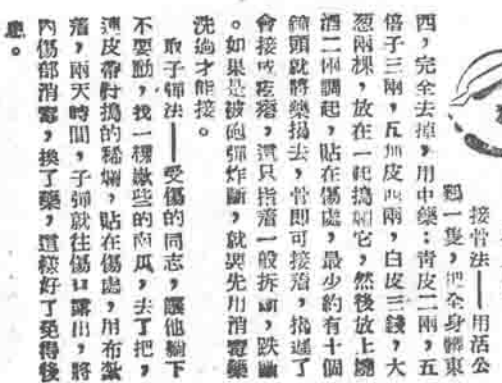 接骨法——用活公
鷄一隻，把全身髒東
西，完全去掉，用中藥：靑皮二兩，五
倍子三兩，五加皮四兩，白皮三錢，大
葱兩棵，放在一起搗爛它，然後放上燒
酒二兩調起，貼在傷處，最少約有十個
鐘頭就將藥揭去，骨卽可接着，揭遲了
會接成疙瘩，這只指着一般拆斷，跌斷
。如果是被砲彈炸斷，就要先用消毒藥
洗過才能接。
取子彈法——受傷的同志，讓他躺下
不要動，找一棵嫩些的南瓜，去了把，
連皮帶籽搗的稀爛，貼在傷處，用布紮
着，兩天時間，子彈就往傷口露出，將
內傷部消毒，換了藥，這樣好了免得後
患。